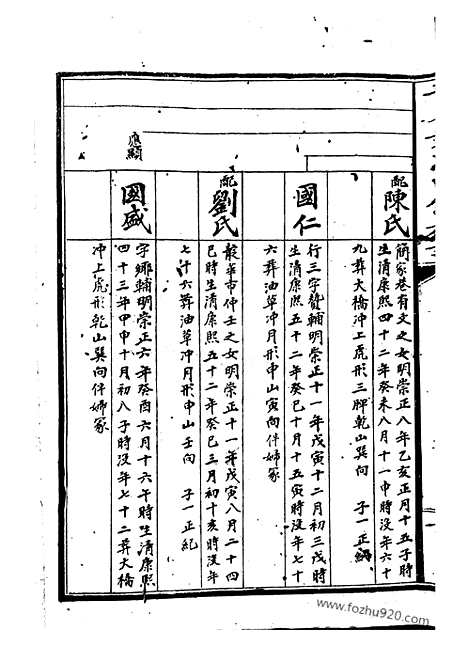 配陳氏
簡家巷有文之女明崇正八年乙亥正月十五子時
生清康熙四十二年癸未八月十一申時沒年六十
九葬大橋冲上虎形三牌乾山巽向 子一正
國仁
行三字贊輔明崇正十一年戊寅十二月初三戌時
生清康熙五十二年癸巳十月十五寅時沒年七十
六葬油草冲月形申山寅向伴姊冢
配劉氏
龍華市仲壬之女明崇正十一年戊寅八月二十四
巳時生清康熙五十二年癸巳三月初十亥時沒年
七十六葬油草冲月形申山壬向 子一正紀
應顯
國盛
字鄉輔明崇正六年癸酉六月十六午時生清康熙
四十三年甲申十月初八子時沒年七十二葬大橋
冲上虎形乾山巽向伴姊冢
www.fozhu920.com